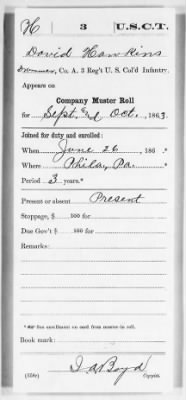 H | 3 | U.S.C.T.
David Hawkins
Drummer, Co. A, 3 Reg't U. S. Col'd Infantry.
Appears on
Company Muster Roll
for Sept. and Oct., 1863.
Joined for duty and enrolled:
When June 26, 186 .*
Where Phila, Pa.
Period 3 years.*
Present or absent Present
Stoppage, $ 100 for
Due Gov't $ 100 for
Remarks:
*See enrollment on card from muster-in roll.
Book mark:
J A Boyd
(358c) Copyist.